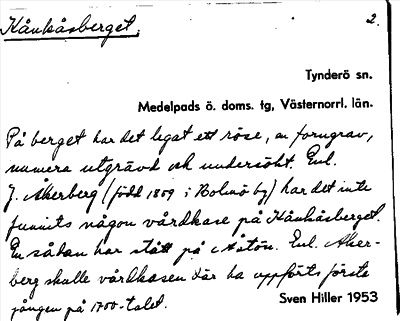 Kånkåsberget. 2.
Tynderö sn.
Medelpads ö. doms. tg, Västernorrl. län.
På berget har det legat ett röse, en forngrav,
numera utgrävd och undersökt. Enl.
J. Åkerberg (född 1859 i Bolmö by) har det inte
funnits någon vårdkase på Kånkåsberget.
En sådan har stått på Åstön. Enl. Åker-
berg skulle vårdkasen där ha uppförts förste
gången på 1700-talet. Sven Hiller 1953